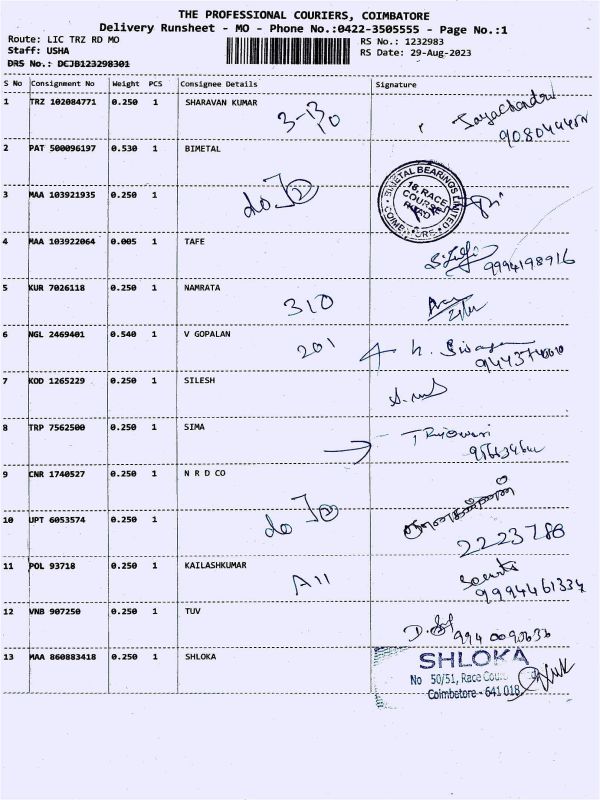 THE PROFESSIONAL COURIERS, COIMBATORE
Delivery Runsheet - MO - Phone No.:0422-3505555 - Page No.:1
Route: LIC TRZ RD MO
RS No.: 1232983
Staff: USHA
RS Date: 29-Aug-2023
DRS No.: DCJB123298301
S No Consignment No Weight PCS Consignee Details Signature
1 TRZ 102084771 0.250 1 SHARAVAN KUMAR
2 PAT 500096197 0.530 1 BIMETAL
BIMETAL BEARINGS LIMITED
18, RACE
COURSE
ROAD
COIMBATORE
3 MAA 103921935 0.250 1
4 MAA 103922064 0.005 1 TAFE
9994198916
5 KUR 7026118 0.250 1 NAMRATA
310
6 NGL 2469401 0.540 1 V GOPALAN
201
7 KOD 1265229 0.250 1 SILESH
8 TRP 7562500 0.250 1 SIMA
9 CNR 1740527 0.250 1 N R D CO
10 UPT 6053574 0.250 1
2223788
11 POL 93718 0.250 1 KAILASHKUMAR
A11
9994461334
12 VNB 907250 0.250 1 TUV
13 MAA 860883418 0.250 1 SHLOKA
SHLOKA
No 50/51, Race
Coimbatore - 641 018